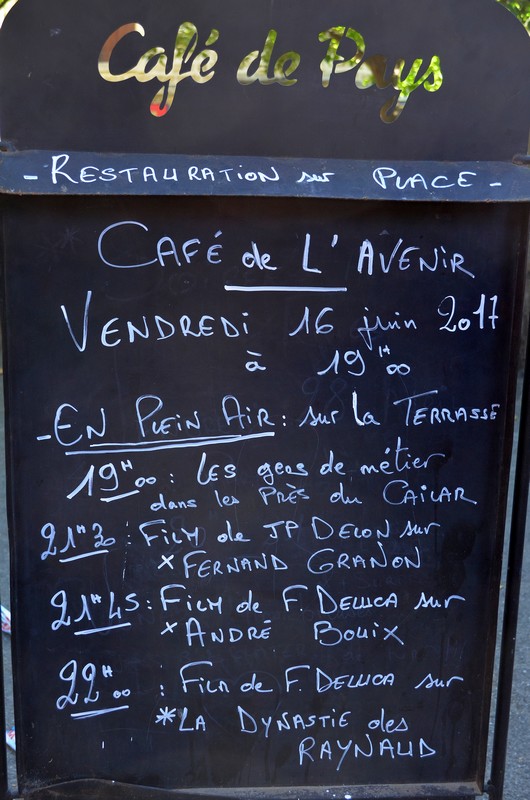 Café de Pays
- RESTAURATION sur PLACE -
CAFÉ de L'AVENIR
VENDREDI 16 juin 2017
à 19H00
- EN PLEIN AIR : sur la TERRASSE
19H00 : Les gens de métier
dans les PRÈS du CAILAR
21H30 : FILM de JP DELON sur
x FERNAND GRANON
21H45 : FILM de F. DELLICA sur
x ANDRÉ BOUIX
22H00 : FILM de F. DELLICA sur
*LA DYNASTIE des
RAYNAUD